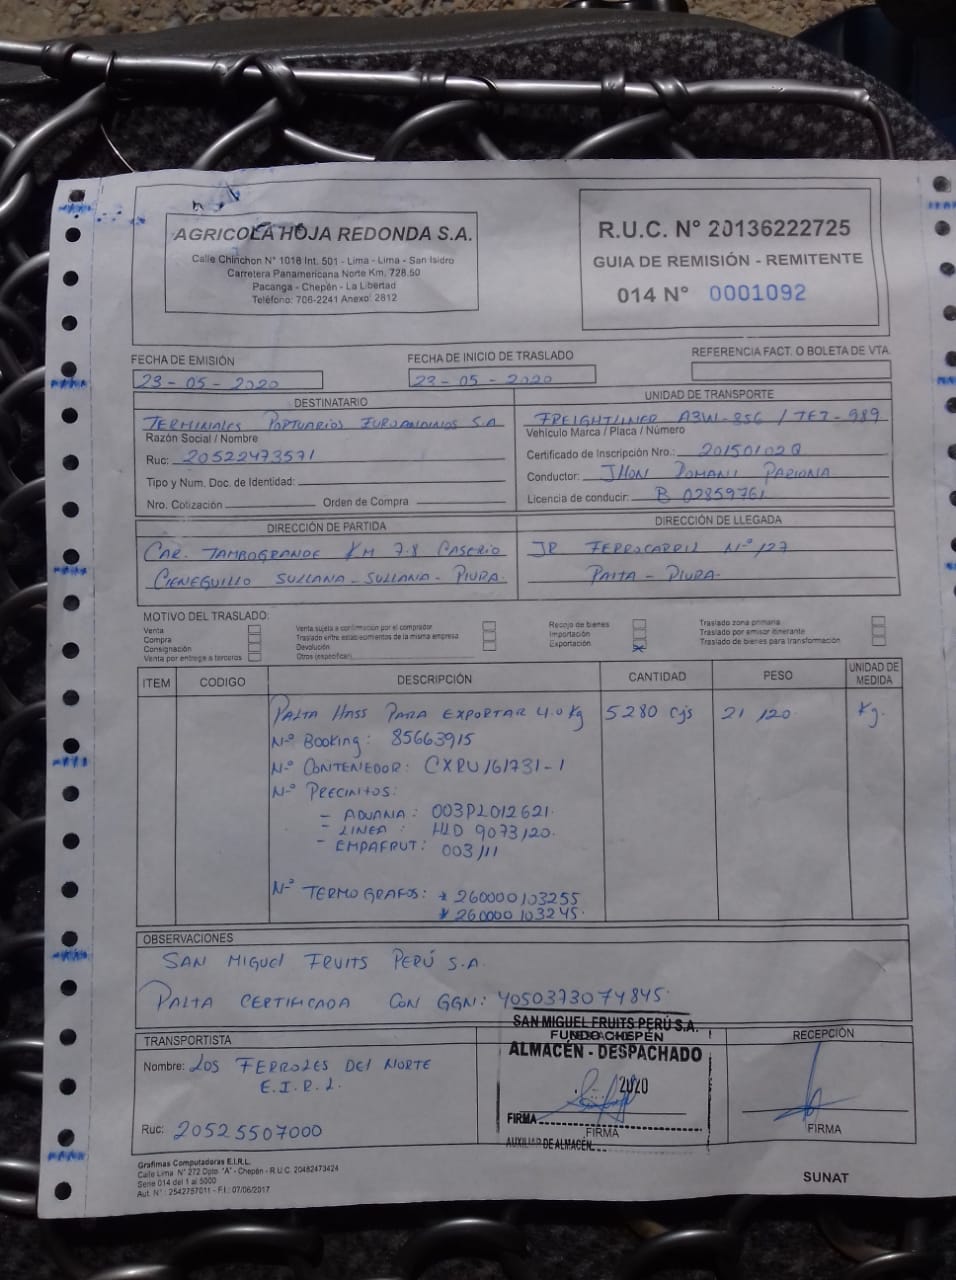 AGRICOLA HOJA REDONDA S.A.
Calle Chinchon N° 1018 Int. 501 - Lima - Lima - San Isidro
Carretera Panamericana Norte Km. 728.50
Pacanga - Chepén - La Libertad
Teléfono: 706-2241 Anexo: 2812
R.U.C. N° 20136222725
GUIA DE REMISIÓN - REMITENTE
014 N° 0001092
FECHA DE EMISIÓN
23-05-2020
FECHA DE INICIO DE TRASLADO
23-05-2020
REFERENCIA FACT. O BOLETA DE VTA.
DESTINATARIO
TERMINALES PORTUARIOS EUROANDINOS S.A.
Razón Social / Nombre
Ruc: 20522473571
Tipo y Num. Doc. de Identidad:
Nro. Cotización Orden de Compra
UNIDAD DE TRANSPORTE
FREIGHTLINER A3W-856 / TE7-989
Vehículo Marca / Placa / Número
Certificado de Inscripción Nro.:
Conductor: JHON
Licencia de conducir: B 02859761
DIRECCIÓN DE PARTIDA
CAR. TAMBOGRANDE KM 7.8 CASERIO
CIENEGUILLO SULLANA - SULLANA - PIURA.
DIRECCIÓN DE LLEGADA
JR FERROCARRIL N° 127
PAITA - PIURA.
MOTIVO DEL TRASLADO:
Venta
Compra
Consignación
Venta por entrega a terceros
Venta sujeta a confirmación por el comprador
Traslado entre establecimientos de la misma empresa
Devolución
Otros (especificar)
Recojo de bienes
Importación
Exportación X
Traslado zona primaria
Traslado por emisor itinerante
Traslado de bienes para transformación
ITEM CODIGO DESCRIPCIÓN CANTIDAD PESO UNIDAD DE MEDIDA
PALTA HASS PARA EXPORTAR 4.0 Kg 5280 Cjs 21120 Kg.
N° Booking: 85663915
N° CONTENEDOR: CXRU161731-1
N° PRECINTOS:
- ADUANA: 003PL012621.
- LINEA: HLD 9073120.
- EMPAFRUT: 003111
N° TERMOGRAFOS: * 260000103255
* 260000103245.
OBSERVACIONES
SAN MIGUEL FRUITS PERÚ S.A.
PALTA CERTIFICADA CON GGN: 4050373074845.
TRANSPORTISTA
Nombre: LOS FERROLES DEL NORTE
E.I.R.L.
Ruc: 20525507000
SAN MIGUEL FRUITS PERÚ S.A.
FUNDO CHEPÉN
ALMACÉN - DESPACHADO
2020
FIRMA
FIRMA
AUXILIAR DE ALMACÉN
RECEPCIÓN
FIRMA
Grafimas Computadoras E.I.R.L.
Calle Lima N° 272 Dpto. "A" - Chepén - R.U.C. 20482473424
Serie 014 del 1 al 5000
Aut. N°: 2542757011 - F.I.: 07/06/2017
SUNAT